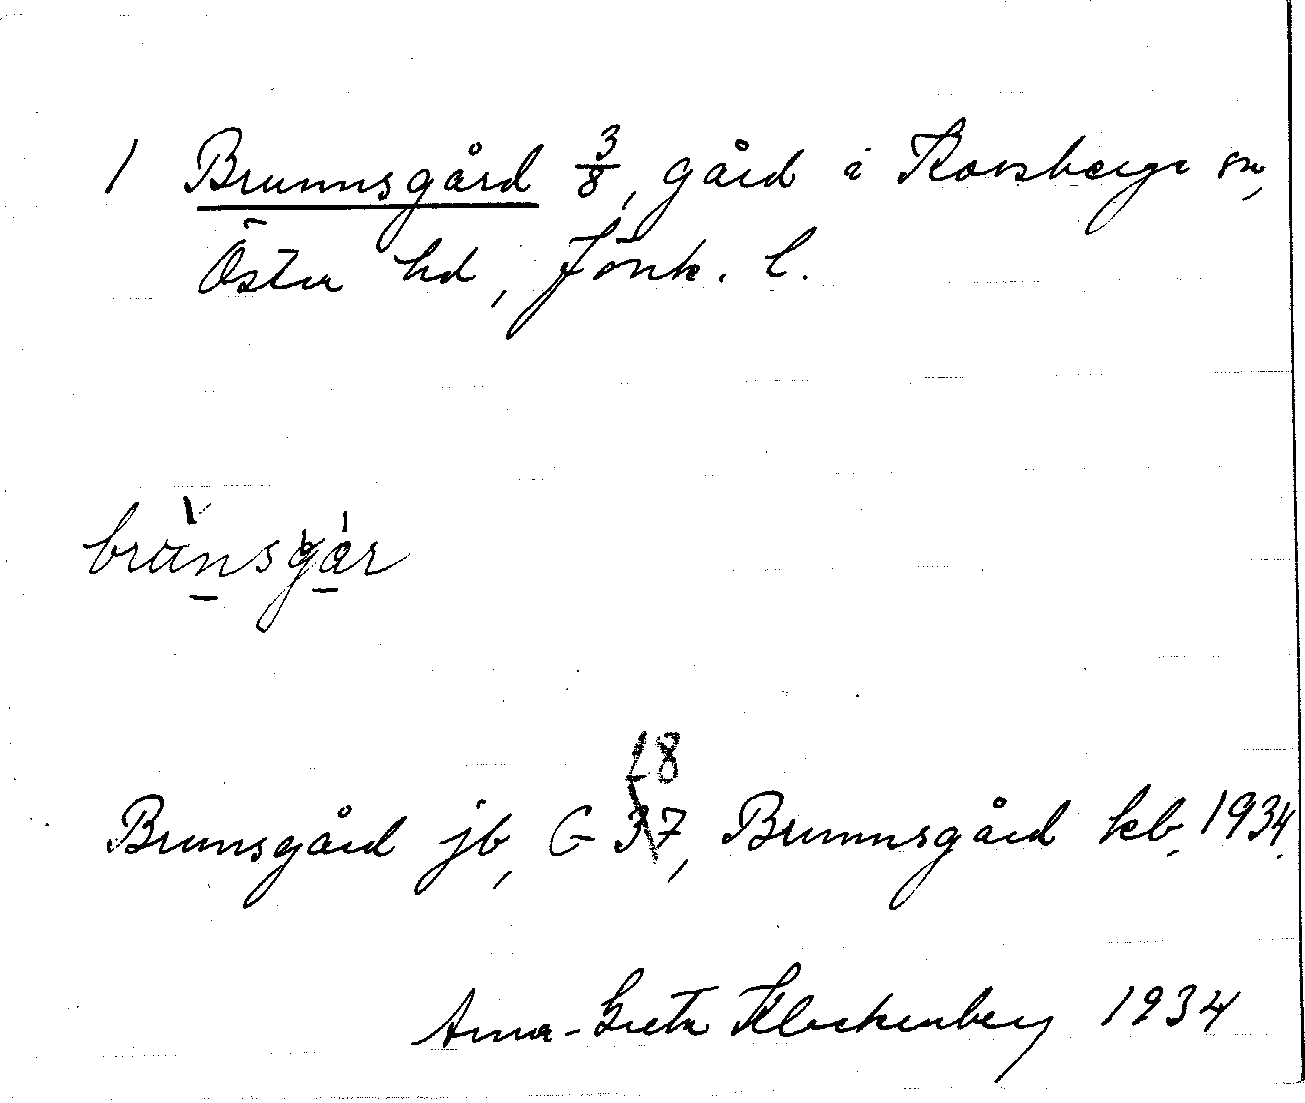 1 Brunnsgård 3/8, gård i Korsberga sn,
Öster hd, Jönk. l.
brunsgår
18
Brunsgård jb, G 37, Brunnsgård kb. 1934.
Anna-Greta Klockenberg 1934